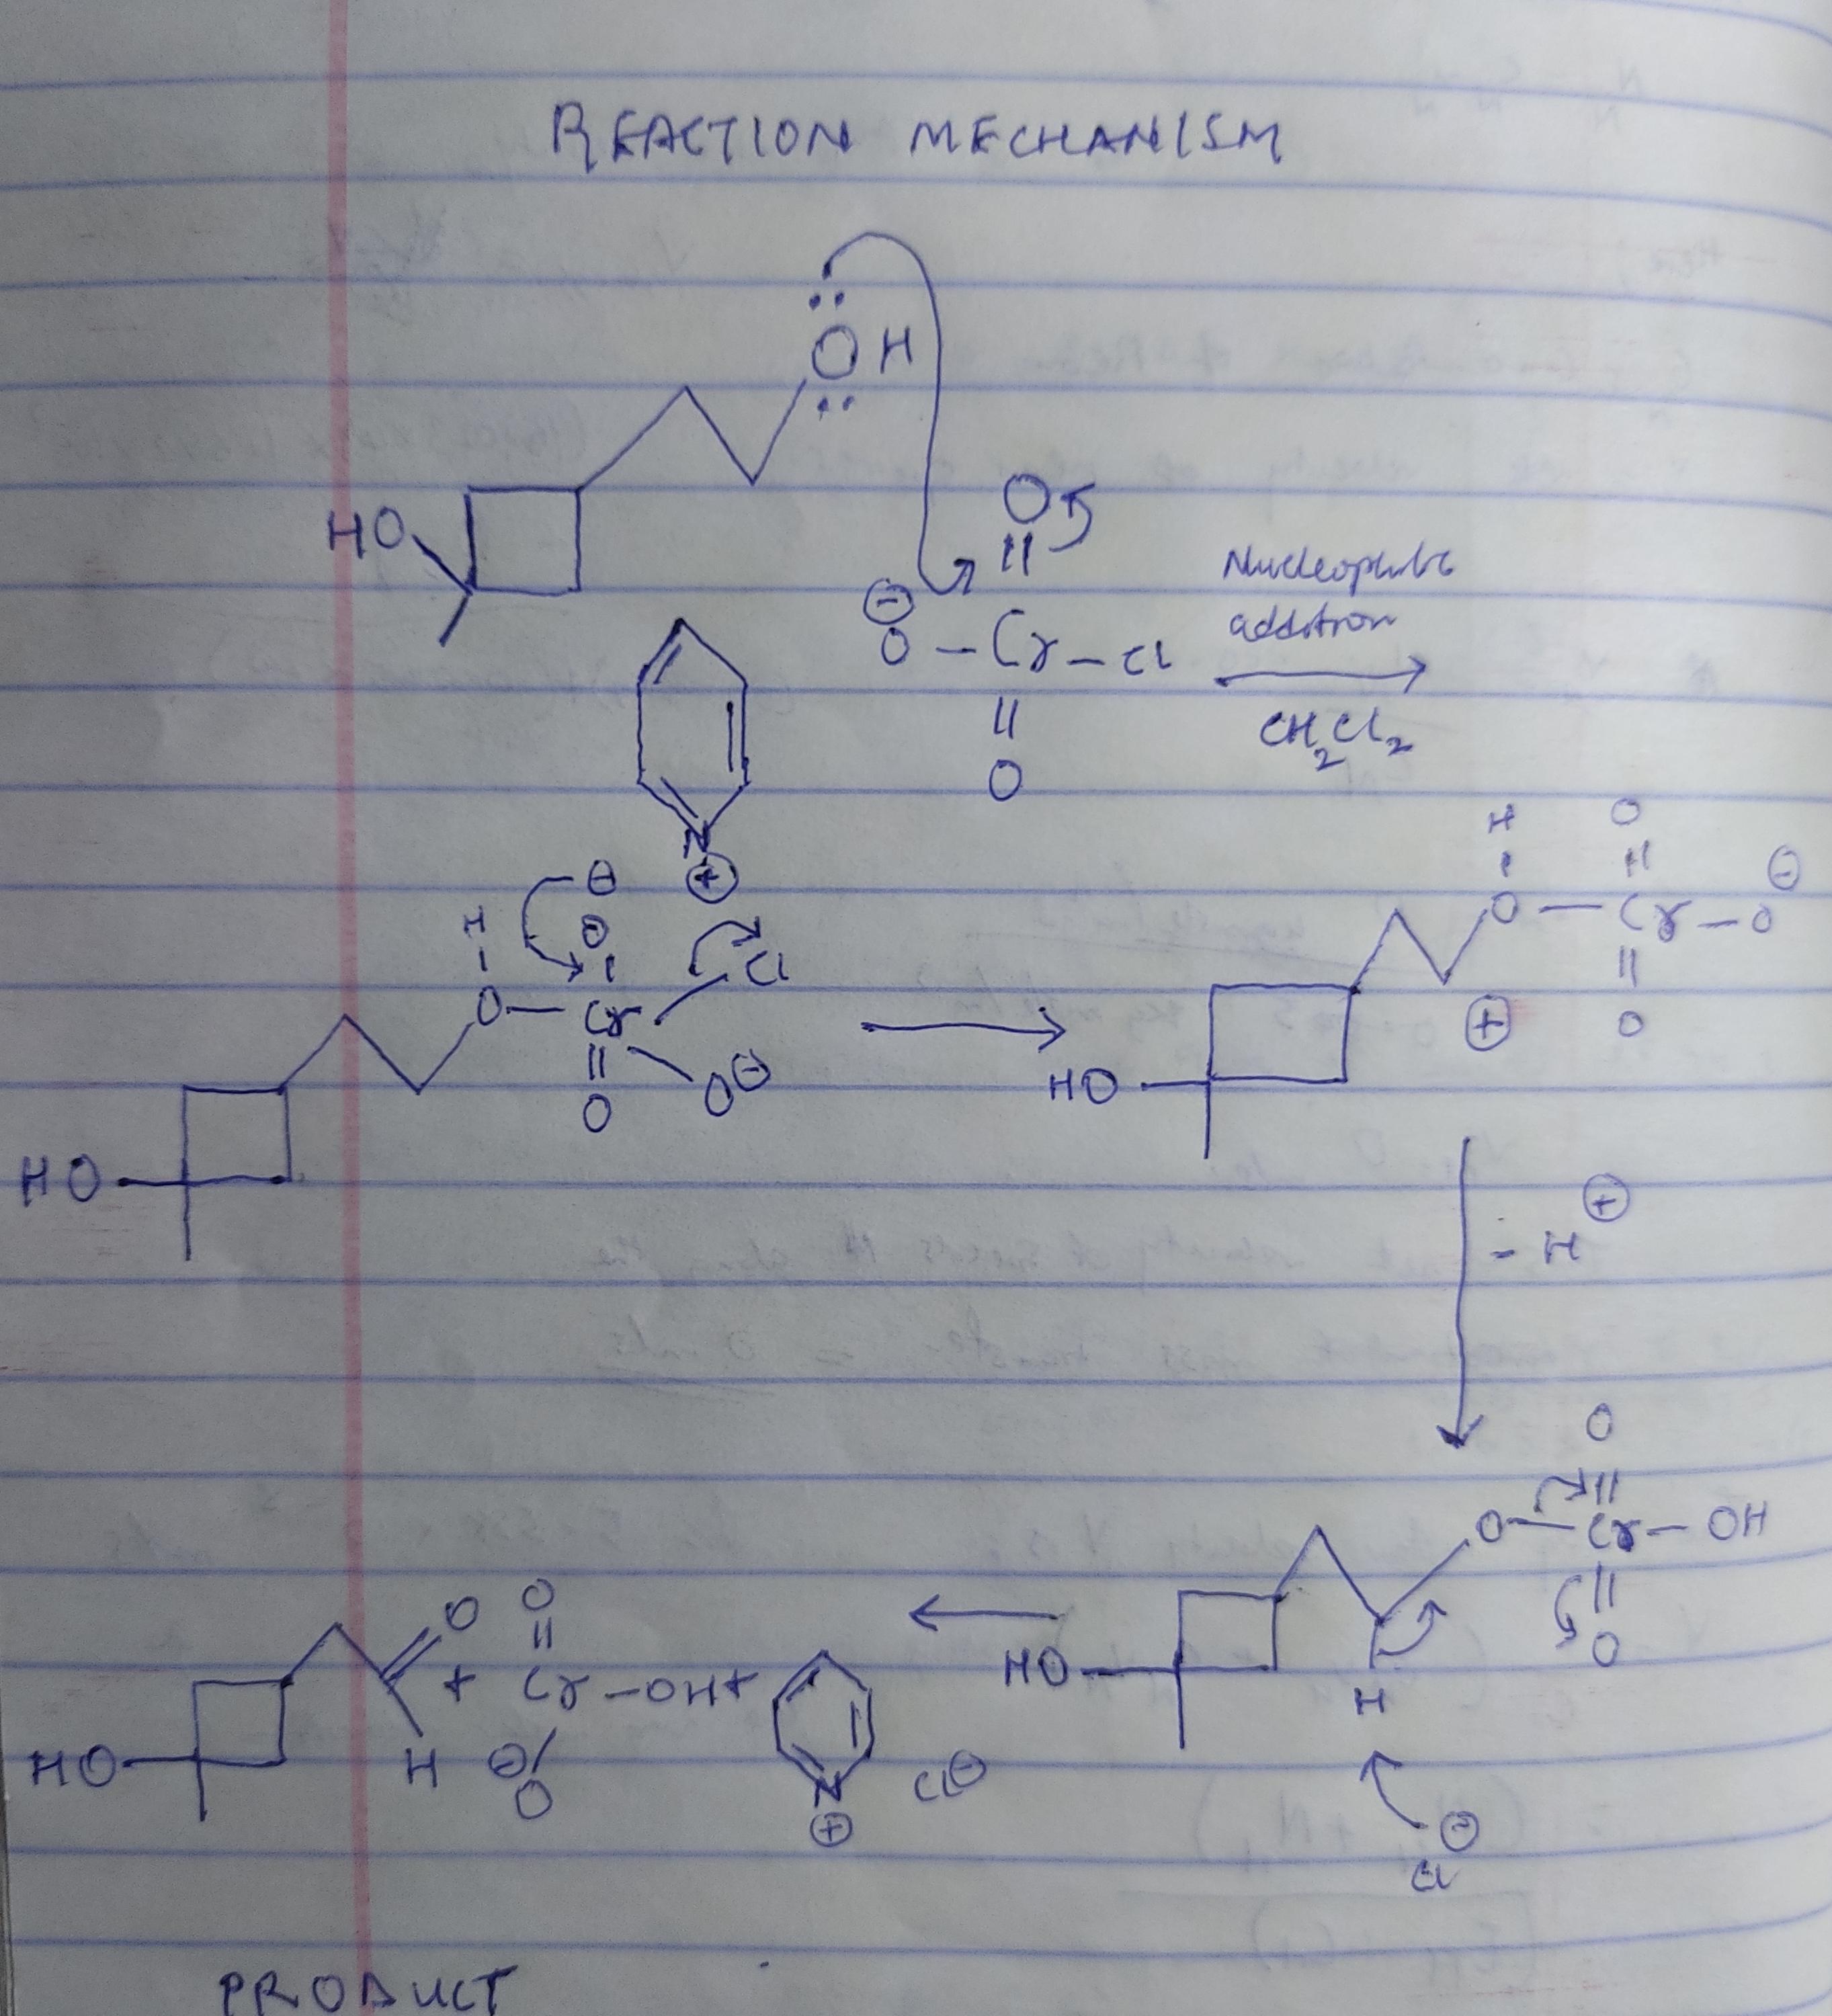 REACTION MECHANISM
OH
HO
O
⊖
O – Cr – Cl
O
Nucleophilic
addition
CH2Cl2
N
⊕
H
⊖
O
O – Cr
Cl
O
O⊖
HO
H
O
⊖
O – Cr – O
O
⊕
HO
- H⊕
O
O – Cr – OH
O
H
HO
⊖
Cl
O
H
HO
+
O
Cr – OH +
⊖
O
N
⊕
Cl⊖
PRODUCT